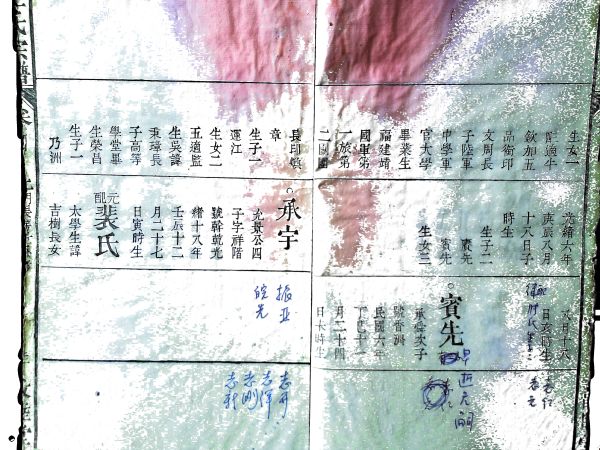 生女一
欽加五
品銜印
文周長
子陸軍
中學軍
官大學
畢業生
福建靖
國軍第
一旅第
二團團
長印鎮
章
生子一
運江
生女二
五適監
生吳諱
秉璋長
子高等
學堂畢
生榮昌
生子一
乃洲
光緒六年
庚辰八月
十八日子
時生
生子二
賓先
生女三
承宇
子字祥階
號幹乾光
緒十八年
壬辰十二
月二十七
日寅時生
元配裴氏
太學生諱
吉樹長女
又月十八
日亥時生
賓先
早逝乏嗣
次子
號香洲
民國六年
丁巳十二
月二十四
振亚
皖先
志丹
志洋
志刚
志新